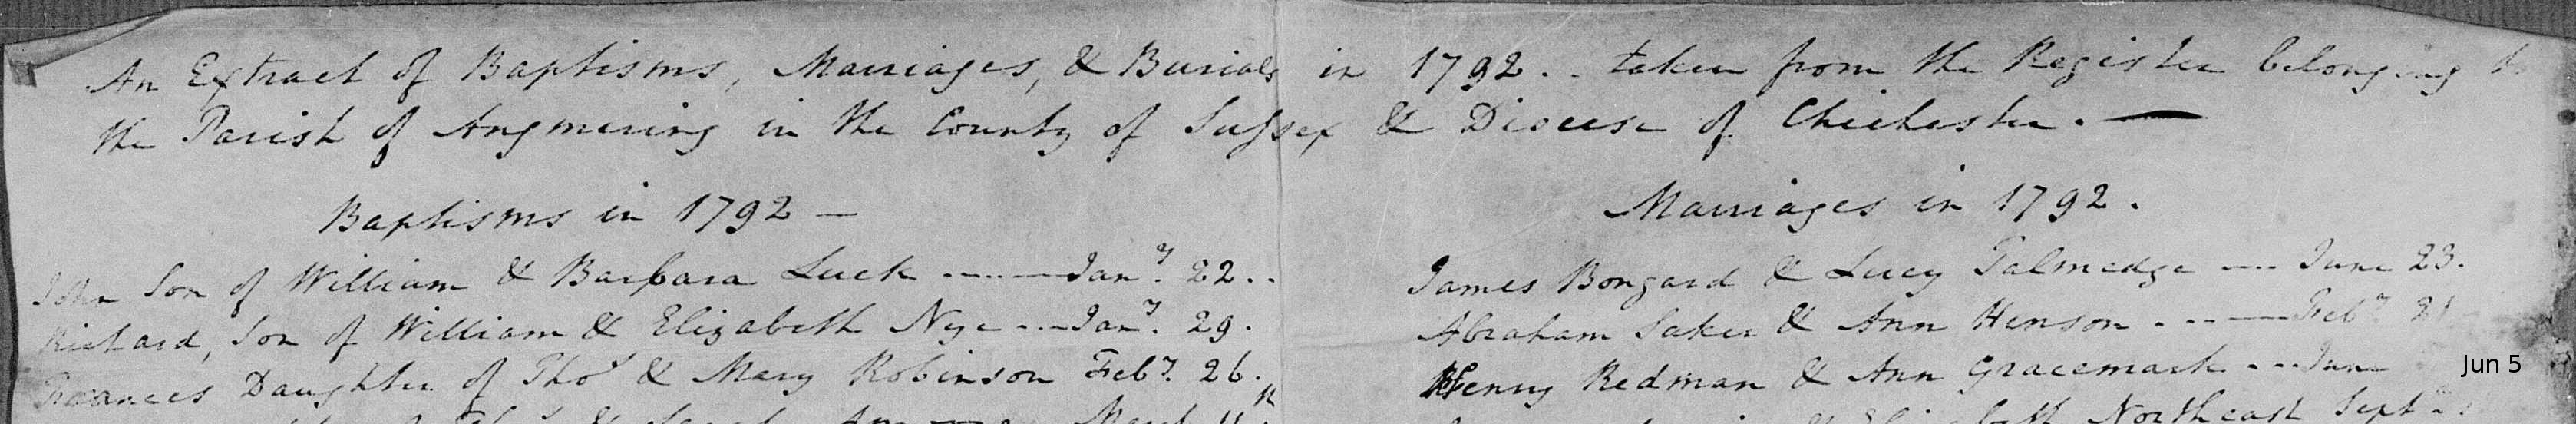 An Extract of Baptisms, Marriages, & Burials in 1792 . . taken from the Register belonging to
the Parish of Angmering in the County of Sussex & Diocese of Chichester. —
Baptisms in 1792 —
John Son of William & Barbara Luck ........ Jany. 22 . .
Richard, Son of William & Elizabeth Nye ... Jany. 29.
Frances Daughter of Thos & Mary Robinson Feby. 26.
March 11th
Marriages in 1792.
James Bongard & Lucy Talmedge .... June 23.
Abraham Saker & Ann Henson . . . . Feby 21
Henry Redman & Ann Gracemark . . . June
Jun 5
& Elizabeth Northeast Sept